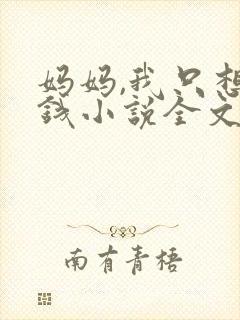 妈妈,我只想
钱小说全文
南有青梧